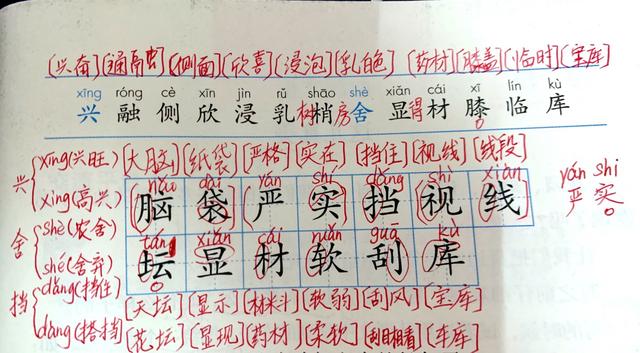 [兴奋][通融][侧面][欣喜][浸泡][乳白色][药材][膝盖][临时][宝库]
xīng róng cè xīn jìn rǔ shāo shè xiǎn cái xī lín kù
兴 融 侧 欣 浸 乳 树梢 房舍 显得 材 膝 临 库
兴 xīng(兴旺) [大脑][纸袋][严格][实在][挡住][视线][线段]
xìng(高兴) nǎo dài yán shí dǎng shì xiàn
脑 袋 严 实 挡 视 线
yán shi
严 实
舍 shè(农舍)
shě(舍弃)
tán xiǎn cái ruǎn guā kù
坛 显 材 软 刮 库
挡 dǎng(挡住) [天坛][显示][材料][软弱][刮风][宝库]
dàng(搭挡) [花坛][显现][药材][柔软][刮目相看][车库]